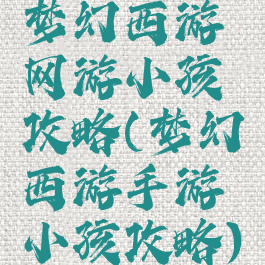 梦幻西游
网游小孩
攻略(梦幻
西游手游
小孩攻略)